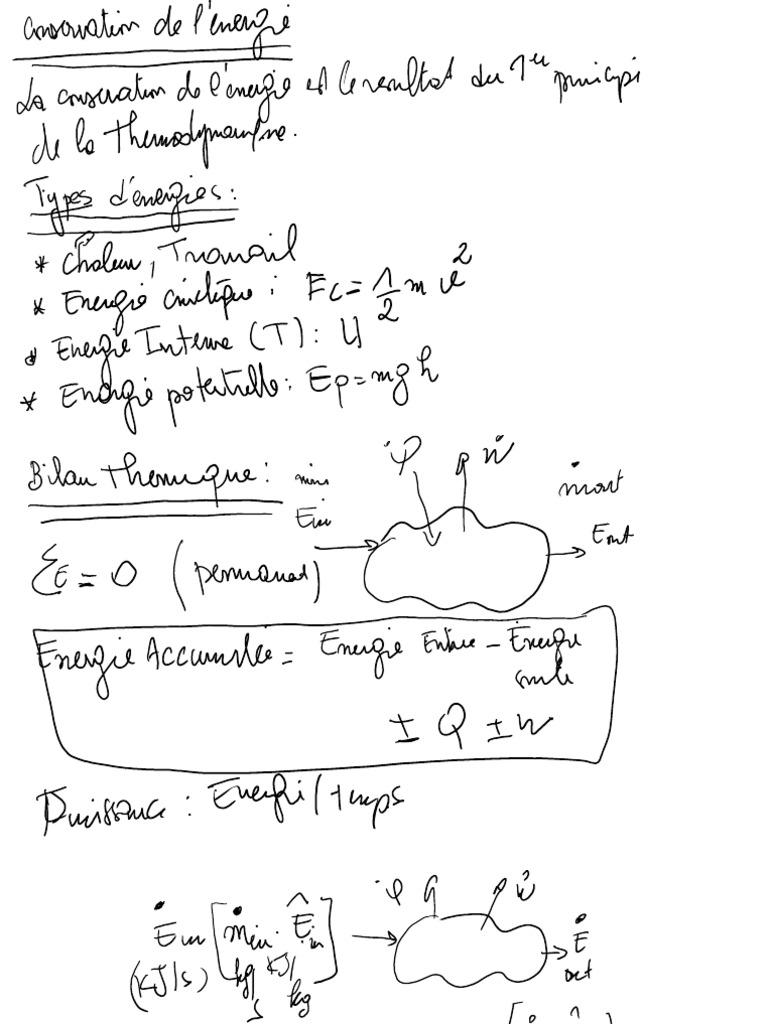 Conservation de l'énergie
La conservation de l'énergie est le resultat du 1er principe
de la thermodynamique.
Types d'énergies:
* Chaleur, Travail
* Energie cinétique: Ec = 1/2 m v²
* Energie Interne (T): U
* Energie potentielle: Ep = mgh
Bilan thermique:
ṁin Ein
Q̇ Ẇ
ṁout Eout
ΣE = 0 (permanent)
Energie Accumulée = Energie Entrée - Energie
sortie
± Q ± W
Puissance: Energie/temps
Q̇ Ẇ
Ėin [ṁin . Êin]
Ė out
(kJ/s) kg/s kJ/kg